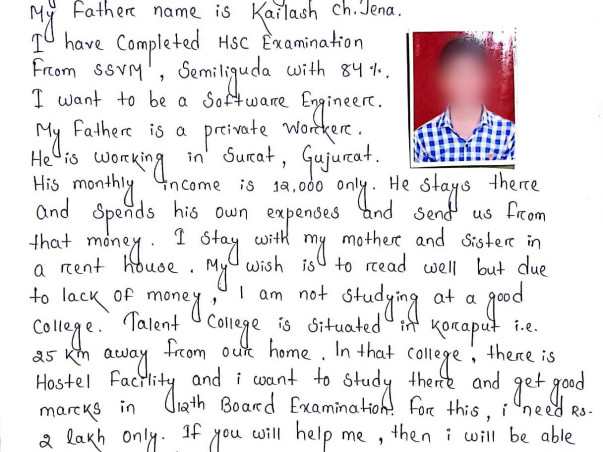 My Father name is Kailash Ch. Jena.
I have Completed HSC Examination
From SSVM, Semiliguda with 84%.
I want to be a Software Engineer.
My Father is a private Worker.
He is working in Surat, Gujurat.
His monthly income is 12,000 only. He stays there
and spends his own expenses and send us from
that money. I stay with my mother and Sister in
a rent house. My wish is to read well but due
to lack of money, I am not studying at a good
College. Talent College is situated in Koraput i.e.
25 Km away from our home. In that college, there is
Hostel Facility and i want to study there and get good
marks in 12th Board Examination. For this, i need Rs-
2 lakh only. If you will help me, then i will be able